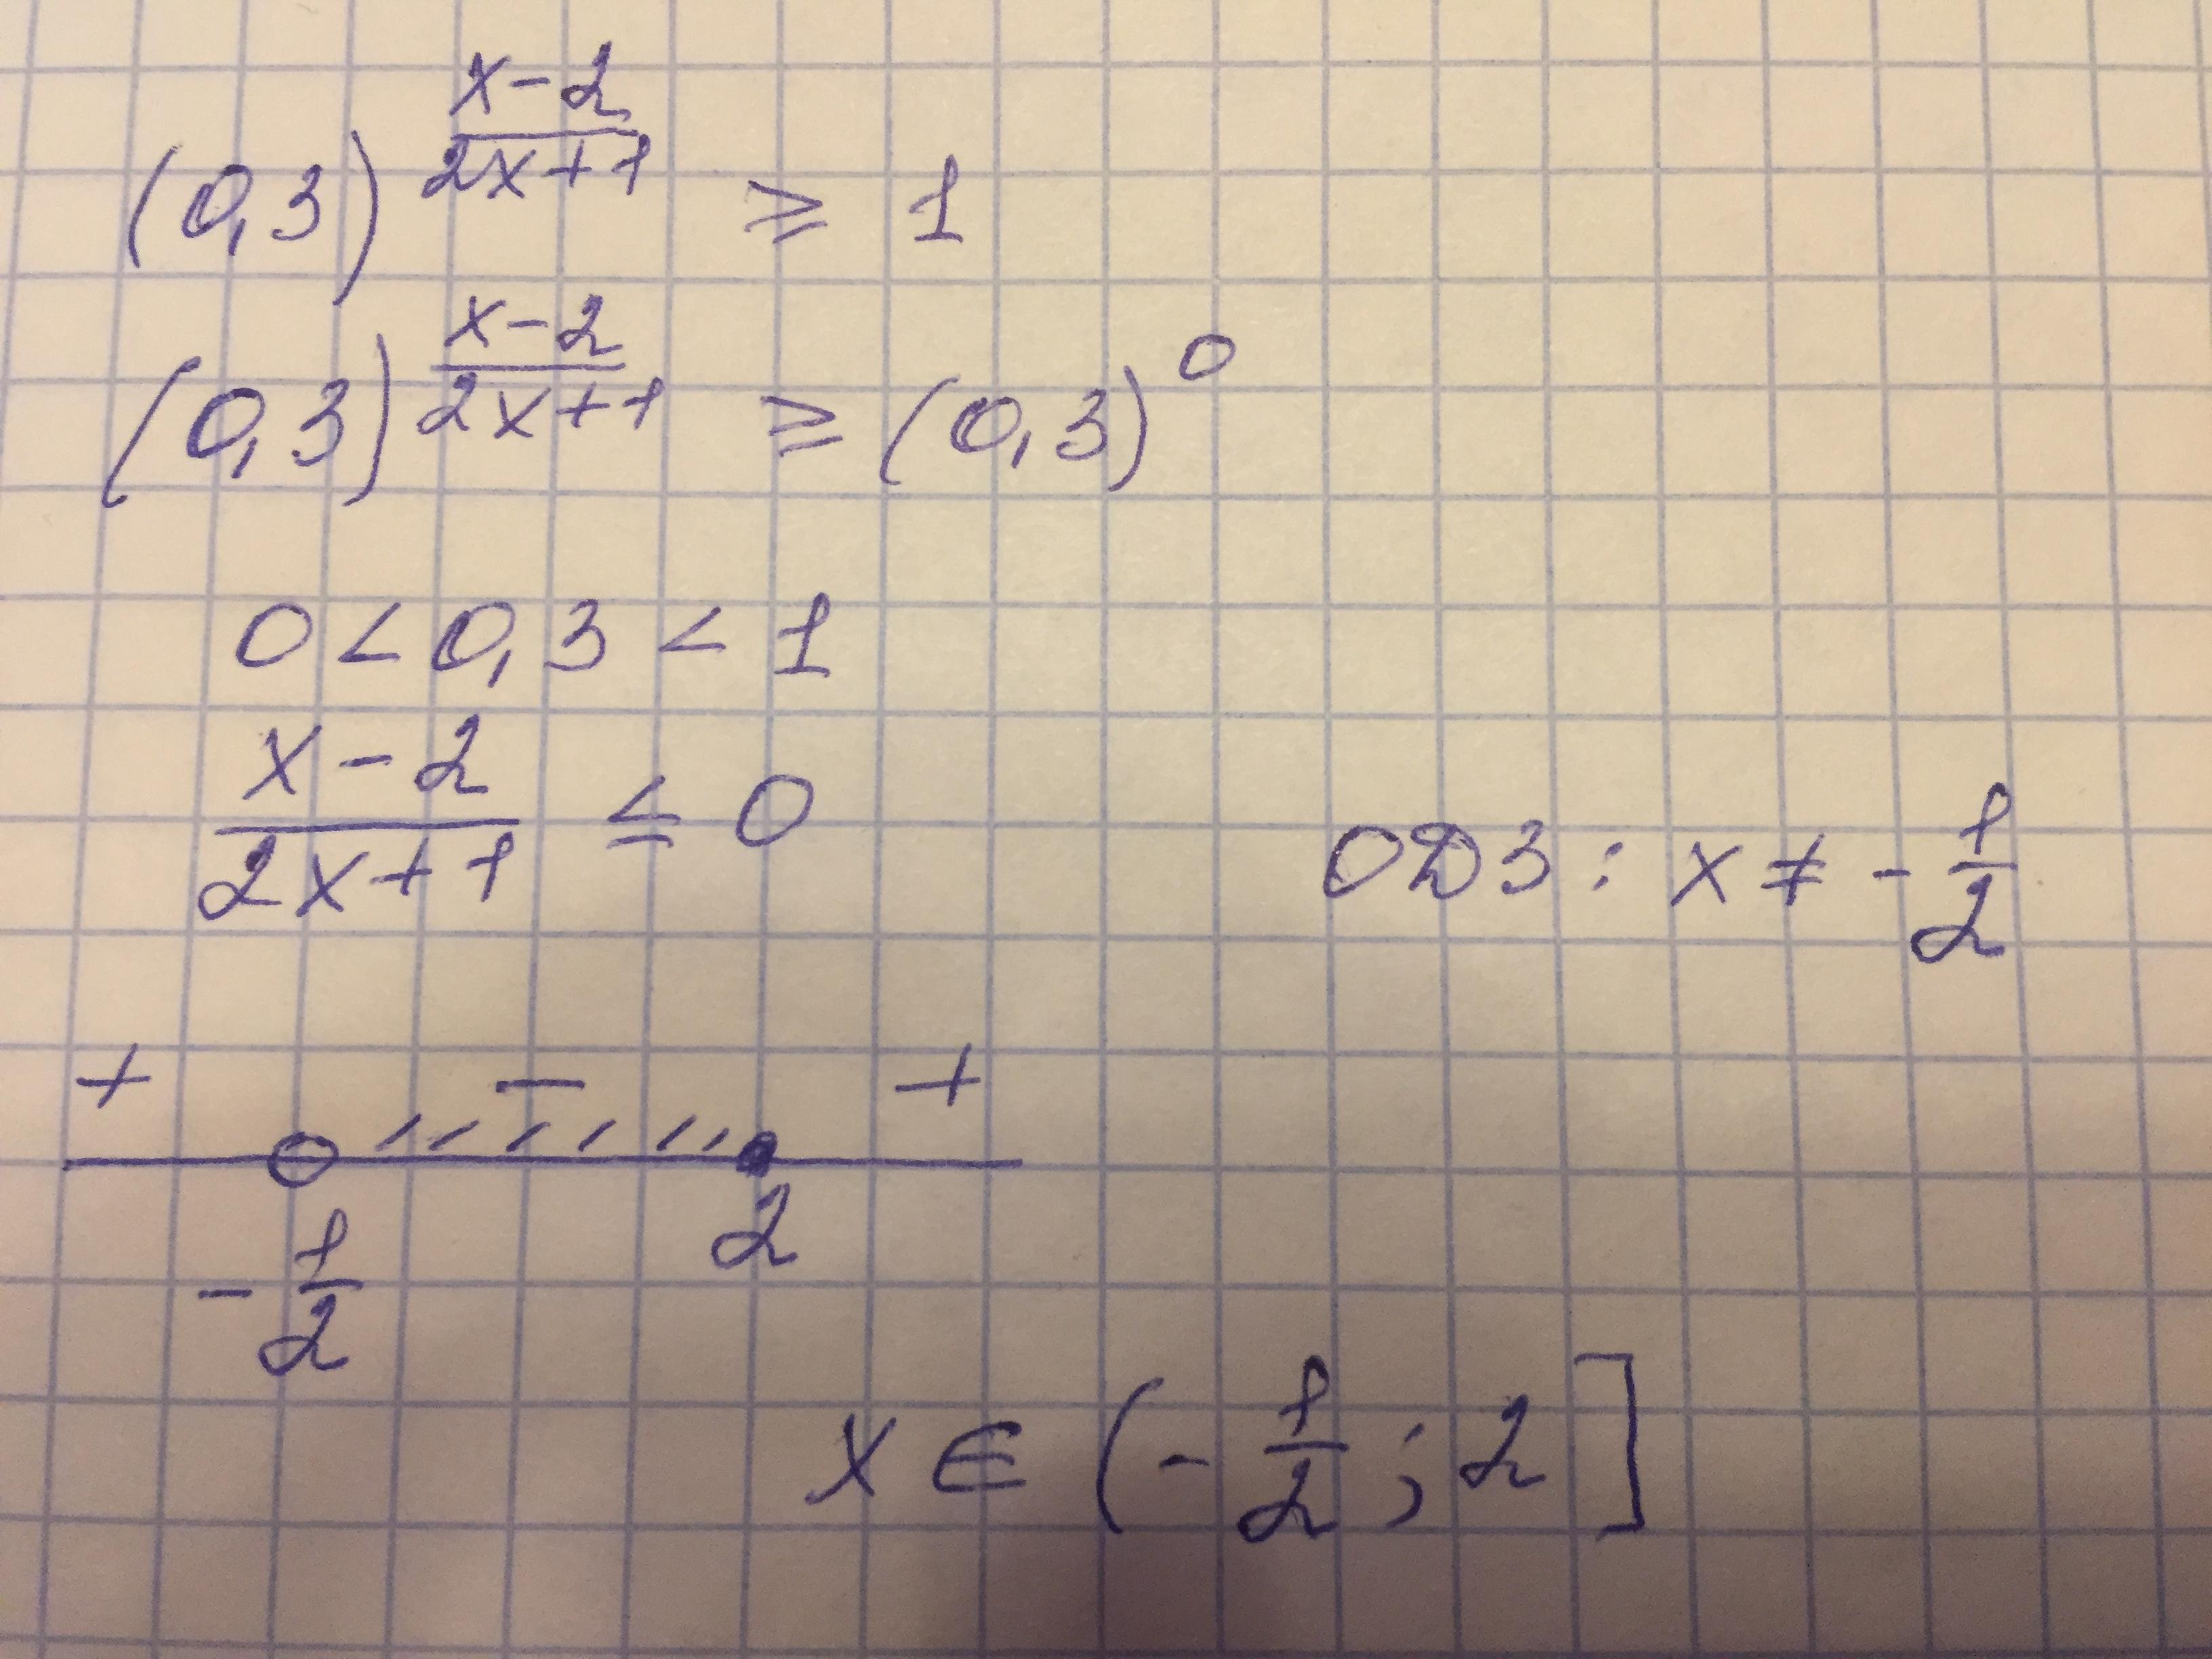 (0,3)^((x-2)/(2x+1)) ⩾ 1
(0,3)^((x-2)/(2x+1)) ⩾ (0,3)^0
0 < 0,3 < 1
(x-2)/(2x+1) ≤ 0
ОДЗ: x ≠ -1/2
+ − +
-1/2 2
x ∈ (-1/2; 2]